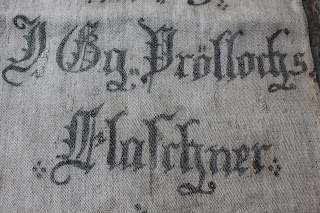 J Gg. Pröllochs
Flaschner.